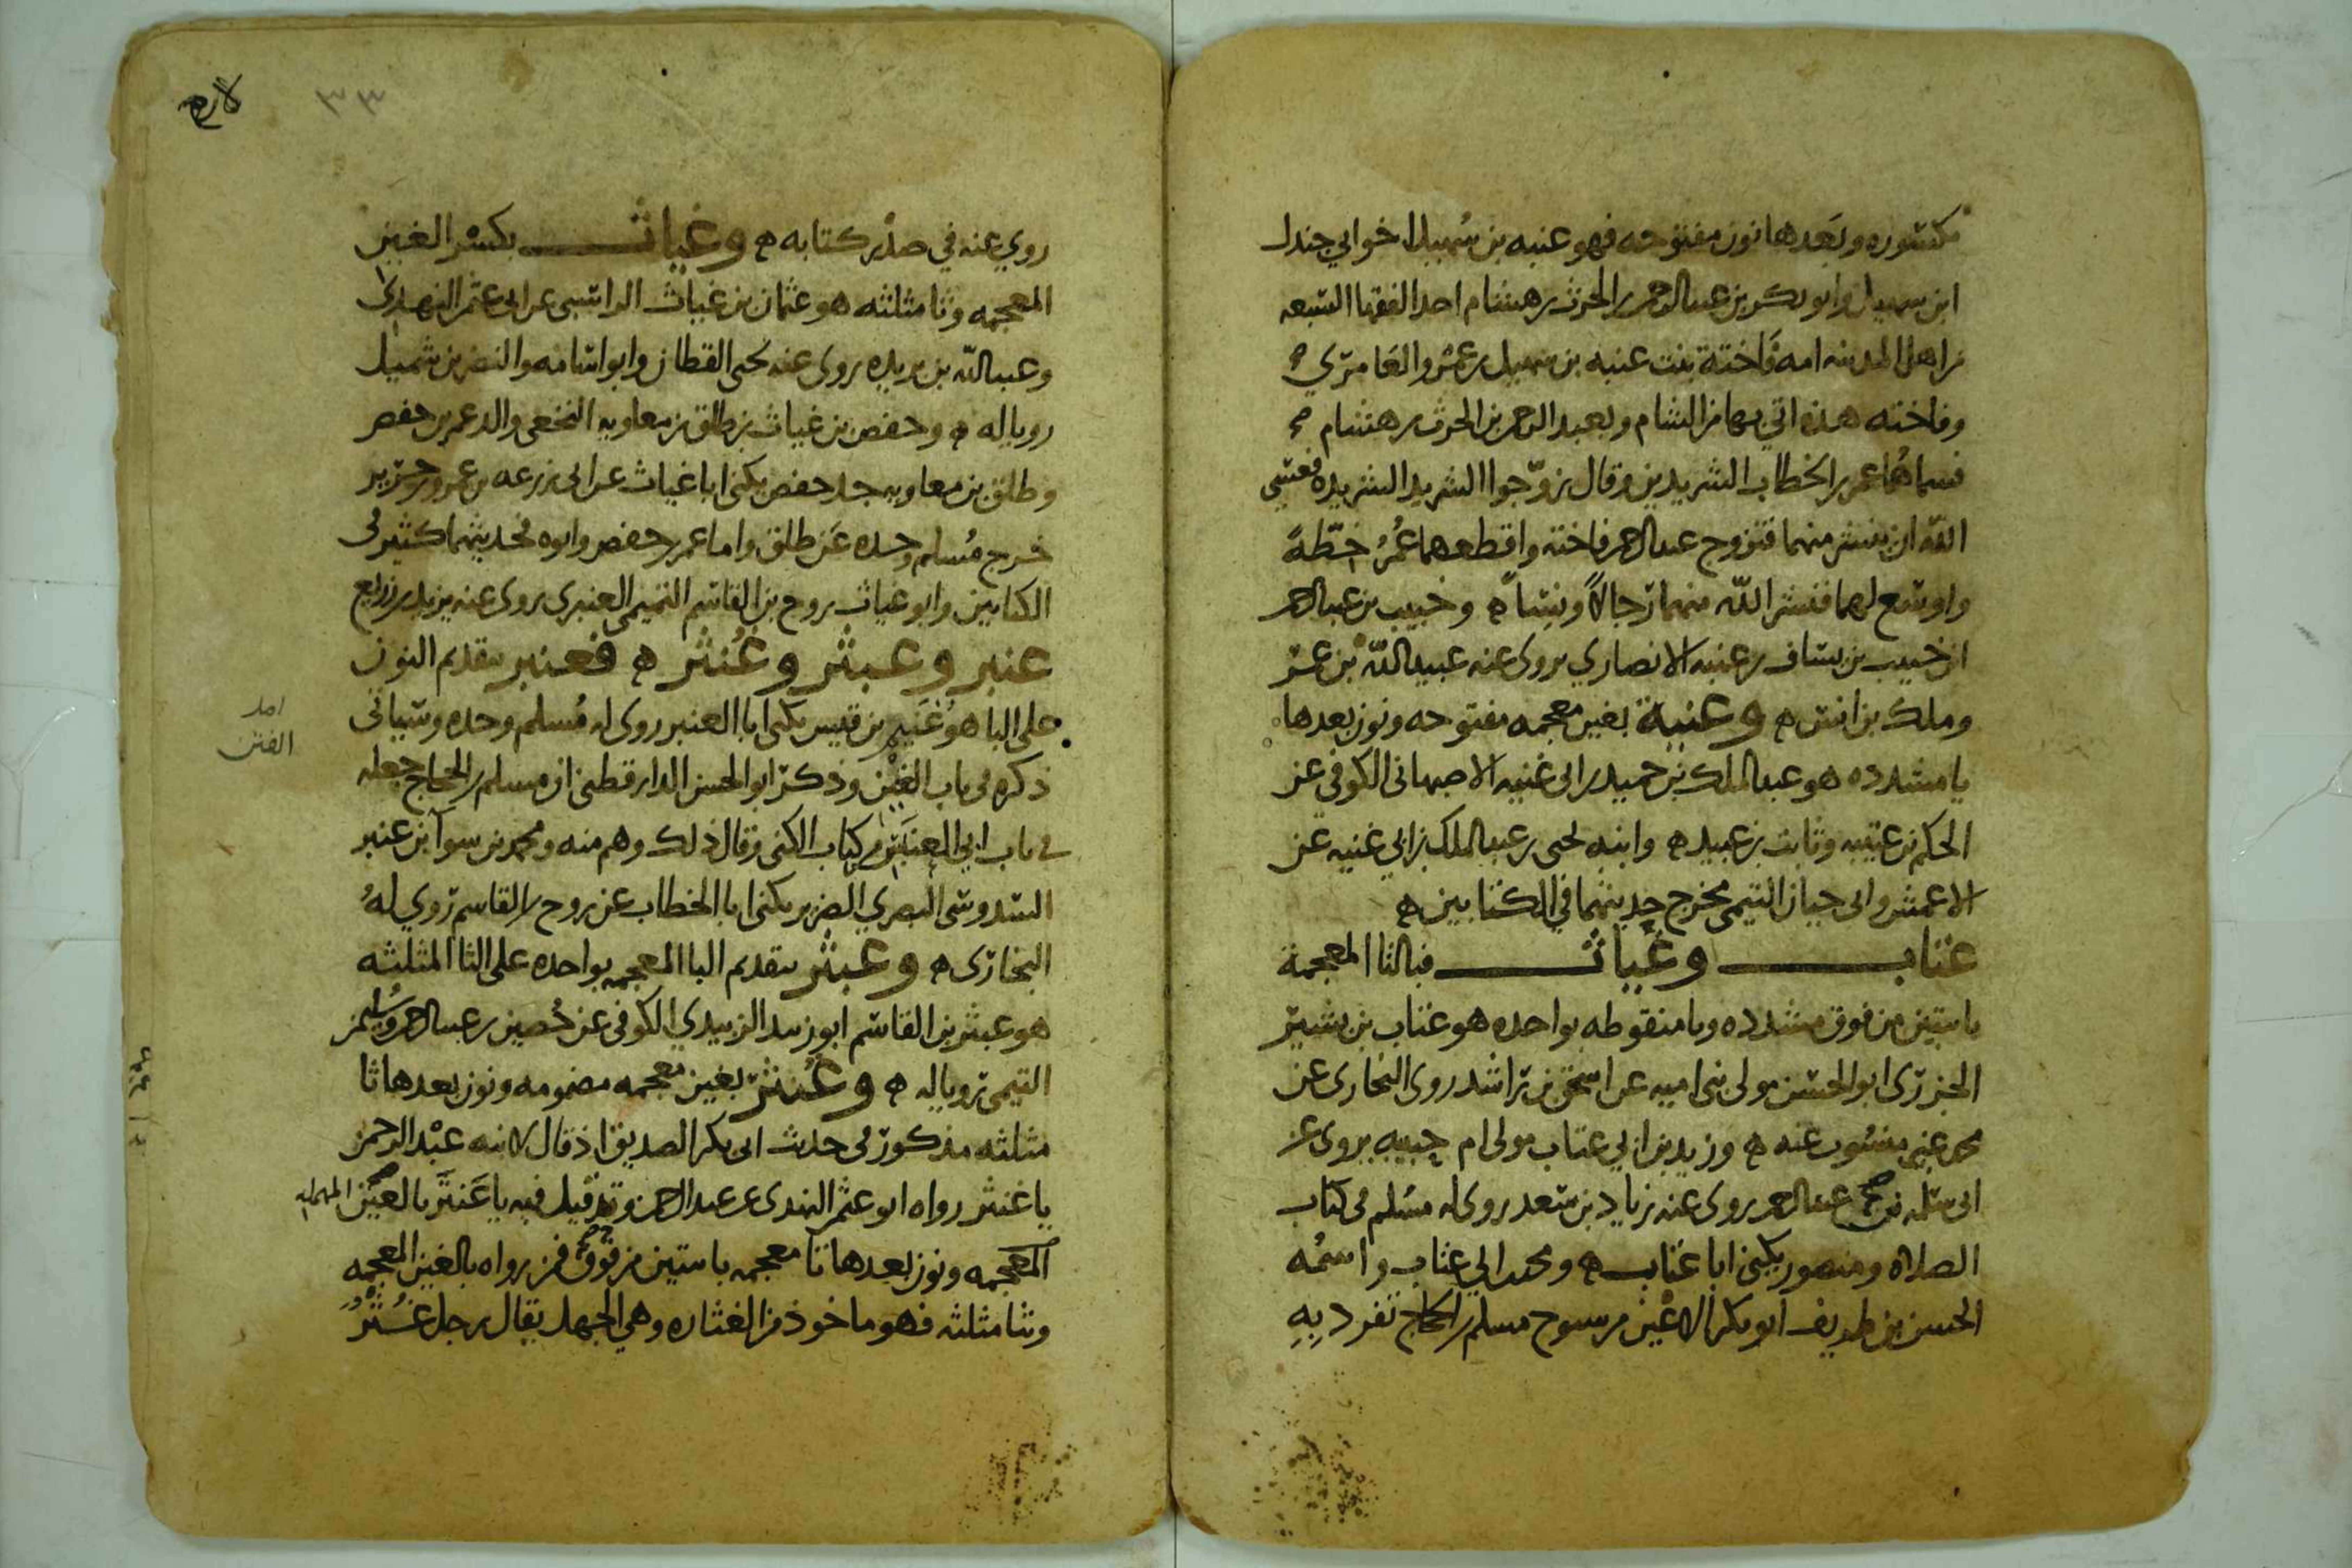 مكسوره وبعدها نون مفتوحه فهو عنبه بن سُهيل اخو ابي جندل
ابن سهيل وابو بكر بن عبد الرحمن بن الحرث بن هشام احد الفقها السبعه
من اهل المدينه امه فَاختة بنت عنبه بن سهيل بن عمرو العَامري
وفاخته هذه اتي بها من الشام وبعبد الرحمن بن الحرث بن هشام
فسماهُما عمر بن الخطاب الشريدين وقال زوّجوا الشريد الشريده فعسى
اللّه ان ينشر منهما فتزوج عبد الرحمن فاخته واقطعهما عُمرُ خِطّةً
واوسع لهما فنشر اللّه منهما رجالاً ونسآً ه وخبيب بن عبد الرحمن
ابن خبيب بن يساف بن عنبه الانصاري يروى عنه عبيد اللّه بن عمر
وملك بن انس ه وغنية بغين معجمه مفتوحه ونون بعدها
يا مشدده هو عبد الملك بن حميد بن ابى غنيه الاصبهانى الكوفي عن
الحكم بن عتيبه وثابت بن عبيد ه وابنه يحيى بن عبد الملك بن ابي غنيه عن
الاعمش وابى حيان التيمى مخرج حديثهما في الكتابين ه
عتاب وغياث فبالتا المعجمة
باثنتين من فوق مشدده وبا منقوطه بواحده هو عتاب بن بشير
الجزرى ابو الحسن مولى بنى اميه عن اسحق بن راشد روى البخارى عن
محمد غير منسوب عنه ه وزيد بن ابي عتاب مولى ام حبيبه يروى عن
ابى سلمه بن عبد الرحمن روى عنه زياد بن سعد روى له مسلم فى كتاب
الصلاه ومنصور يكنى ابا عتاب ه ومحمد بن ابي عتاب واسمُه
الحسن بن طريف ابو بكر الاعْين من شيوخ مسلم بن الحجاج تفرد بِهِ
لارم
٣٣
روي عنه في صدر كتابه ه وغياث بكسر الغين
المعجمه وثا مثلثه هو عثمان بن غياث الراسبى عن ابى عثمن النهدى
وعبد اللّه بن بريده روى عنه يحيى القطان وابو اسامه والنضر بن شميل
رويا له ه وحفص بن غياث بن طلق بن معاويه النخعى والد عمر بن حفص
وطلق بن معاويه جد حفص يكنى ابا غياث عن ابى زرعه بن عمرو بن جرير
خرج مُسلم وحده عَن طلق واما عمر بن حفص وابوه فحديثهما كثير فى
الكتابين وابو غياث روح بن القاسم التميمى العنبرى روى عنه يزيد بن زريع
عنبر وعبثر وغُنثر ه فعنبر بتقديم النون
على البا هو غنيم بن قيس يكنى ابا العنبر روى له مُسلم وحده وسياتى
ذكره فى باب الغين وذكر ابو الحسن الدارقطنى ان مسلم بن الحجاج جعله
فى باب ابي العنبر من كتاب الكنى وقال ذلك وهم منه ومحمد بن سوآ بن عنبر
السدوسى البصري الضرير يكنى ابا الخطاب عن روح بن القاسم روي لهُ
البخارى ه وعبثر بتقديم البا المعجمه بواحده على الثا المثلثه
هو عبثر بن القاسم ابو زبيد الزبيدي الكوفى عن حُصين بن عبد الرحمن وسُليمن
التيمى رويا له ه وغُنثر بغين معجمه مضمومه ونون بعدها ثا
مثلثه مذكور فى حديث ابى بكر الصديق اذ قال لابنه عبْد الرحمن
يا غنثر رواه ابو عثمن النهدى عن عبد الرحمن وقد قيل فيه يا عَنتَر بالعين المهمله
المعجمه ونون بعدها تا معجمه باثنتين من فوق فمن رواه بالغين المعجمه
وثا مثلثه فهو ماخوذ من الغثاره وهى الجهل يقال رجل غُنثَرُ